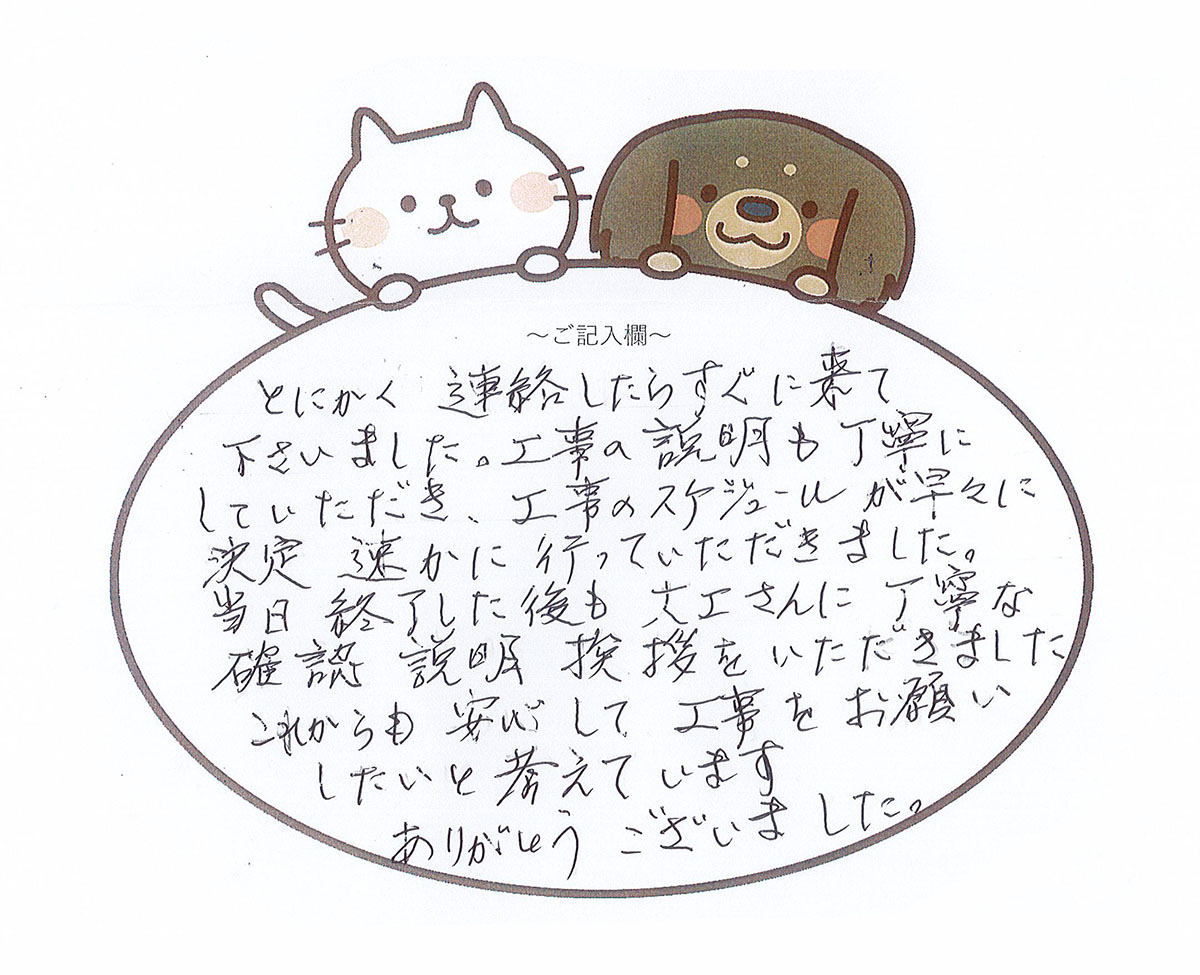 ～ご記入欄～
とにかく 連絡したらすぐに来て
下さいました。工事の説明も丁寧に
していただき、工事のスケジュールが早々に
決定 速かに行っていただきました。
当日 終了した後も 大工さんに丁寧な
確認 説明 挨拶をいただきました
これからも 安心して 工事をお願い
したいと考えています
ありがとう ございました。